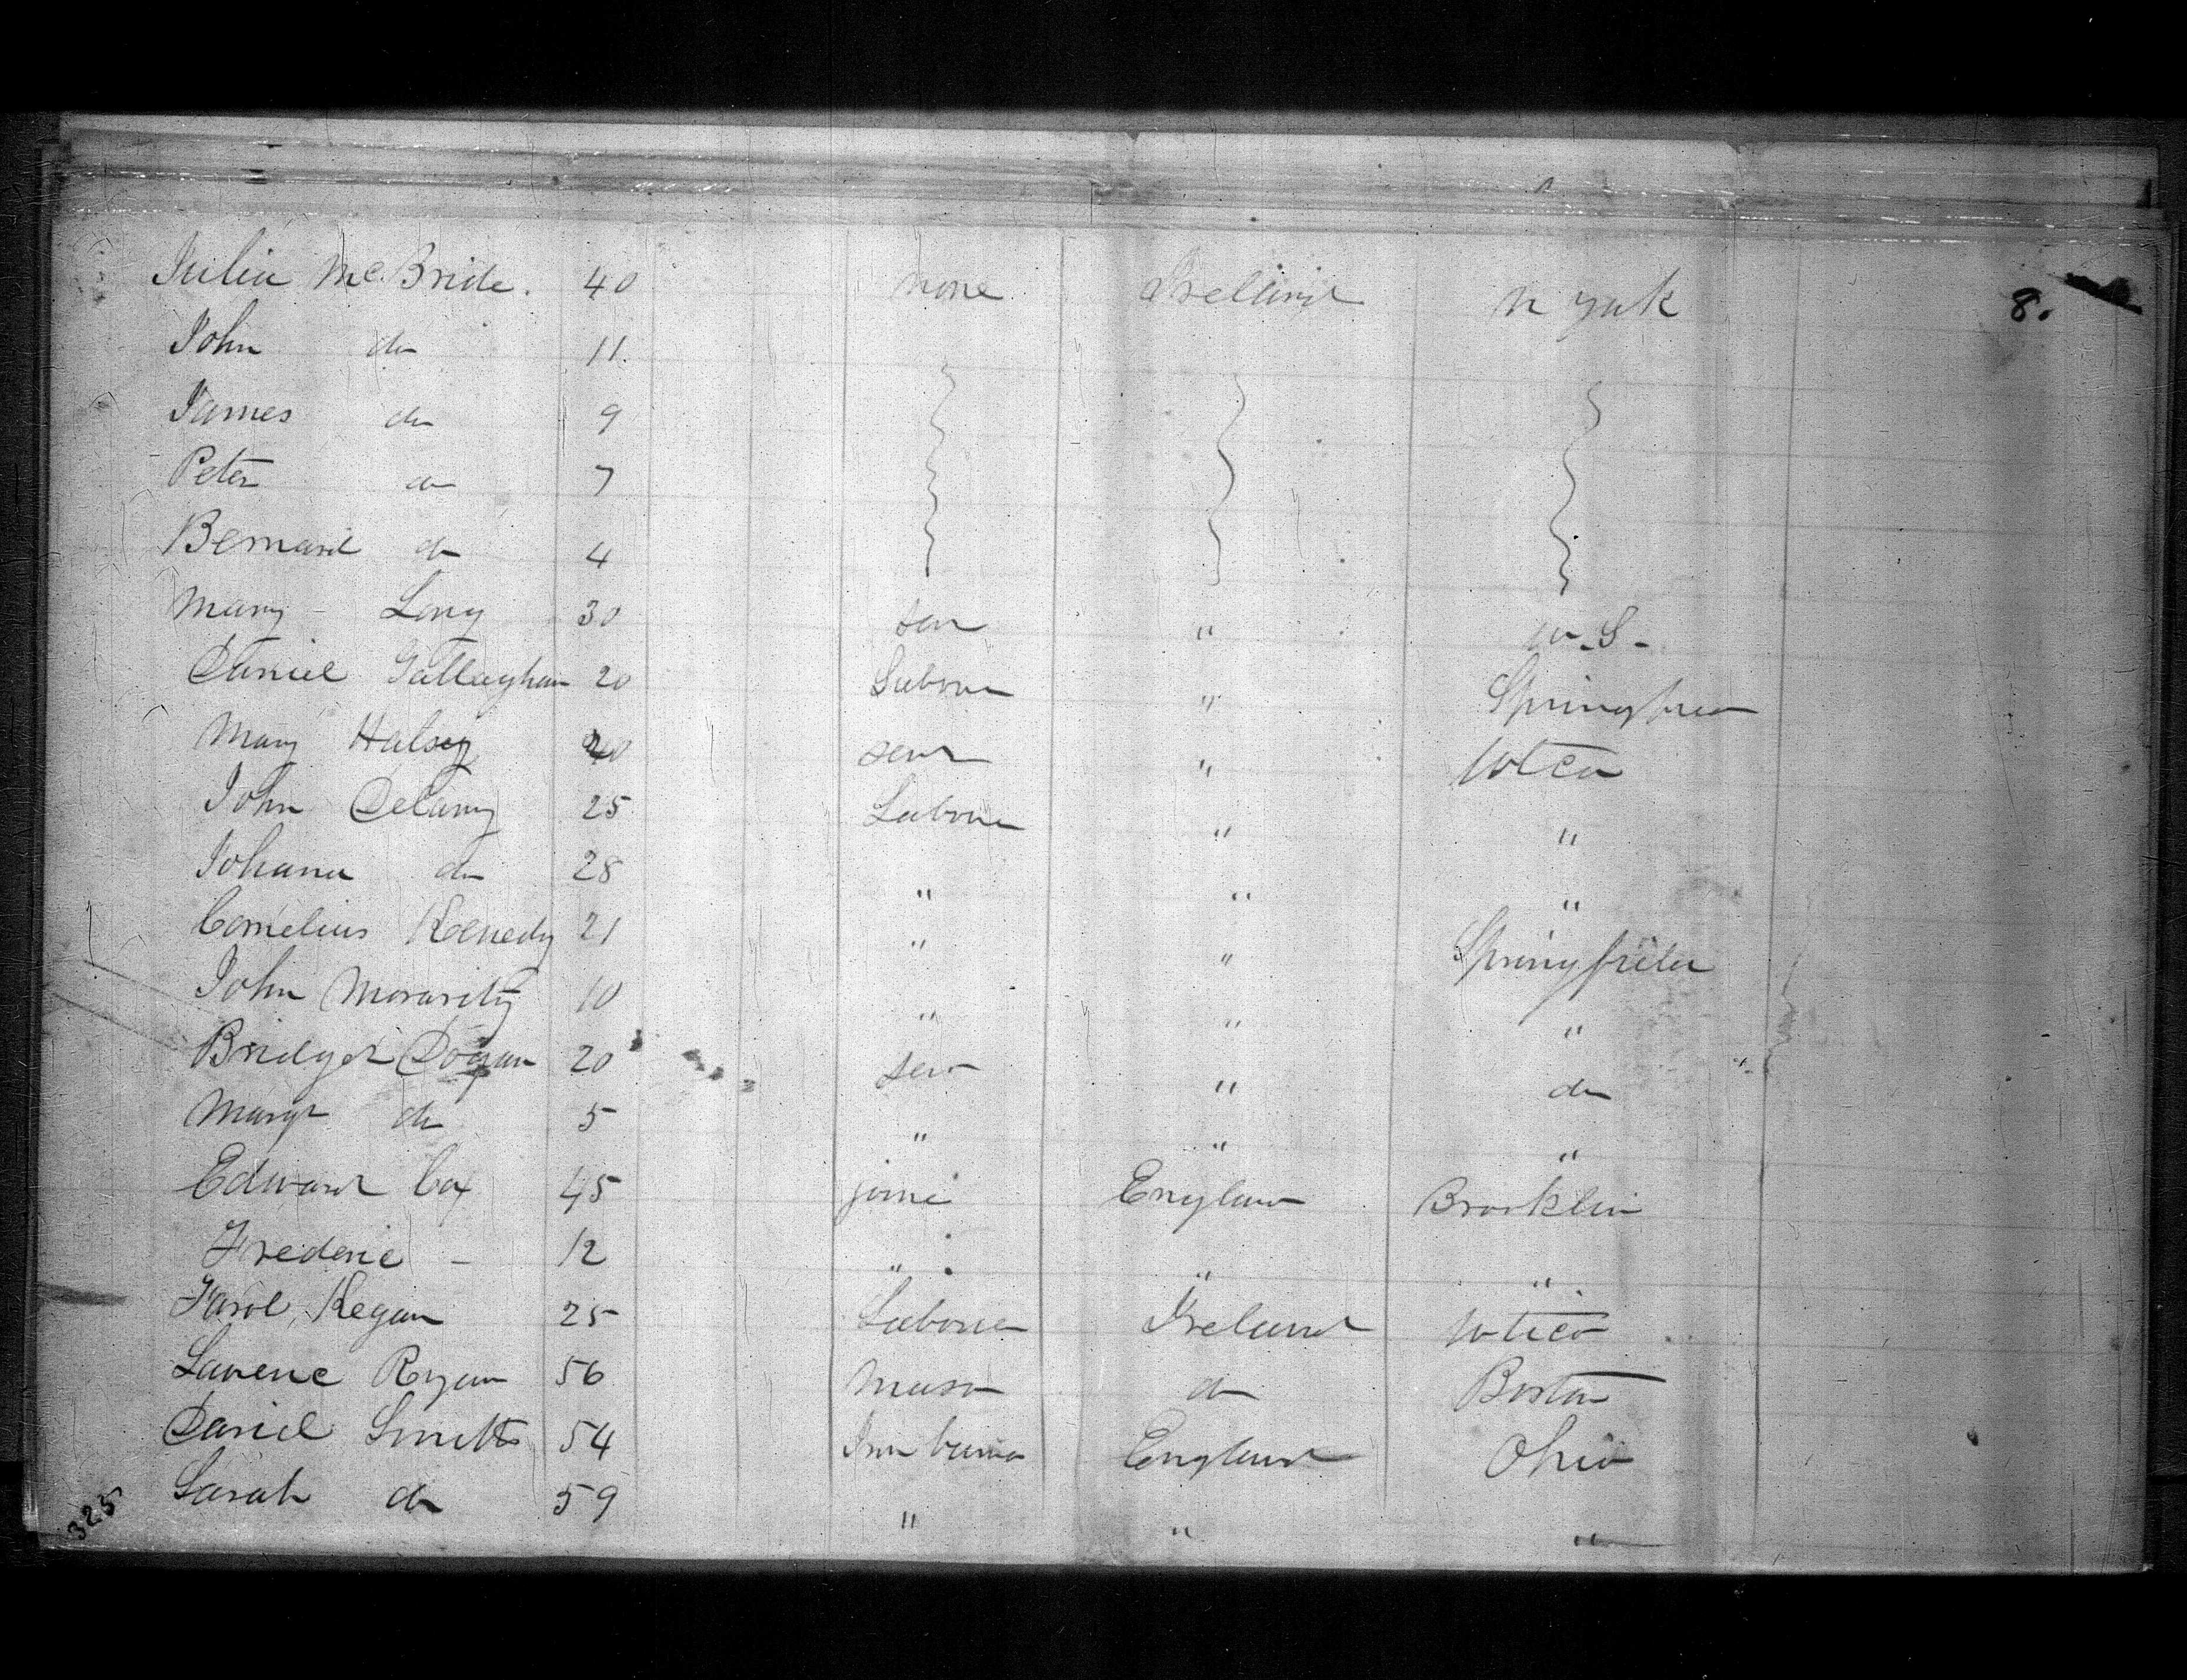 Julia McBride. 40 none Ireland N York 8.
John do 11
James do 9
Peter do 7
Bernard do 4
Mary Long 30 ser " U.S-
Daniel Gallaghan 20 Labour "
Mary Halsey 20 serv " Utica
John Delany 25 Labour " "
Johana do 28 " " "
Cornelius Kenedy 21 " " Springfield
John Morarity 10 " " "
Bridget Dogan 20 serv " do
Margt do 5 " " "
Edward Cox 45 England Brooklin
Frederic - 12 " " "
Kegan 25 Labour Ireland Utica
Larence Ryan 56 Mason do Boston
Daniel Smith 54 England Ohio
Sarah do 59 " " "
325